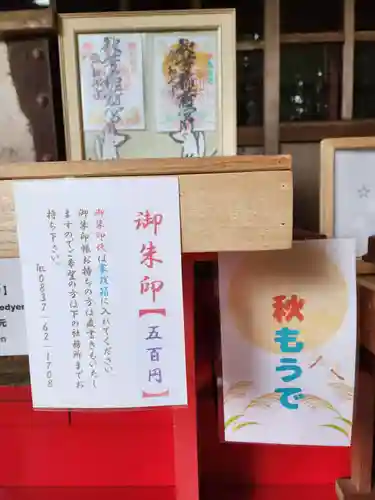 御朱印【五百円】
御朱印代は賽銭箱に入れてください
御朱印帳お持ちの方は直書きもいたし
ますのでご希望の方は下の社務所までお
持ち下さい。
℡0837-62-1708
秋もうで